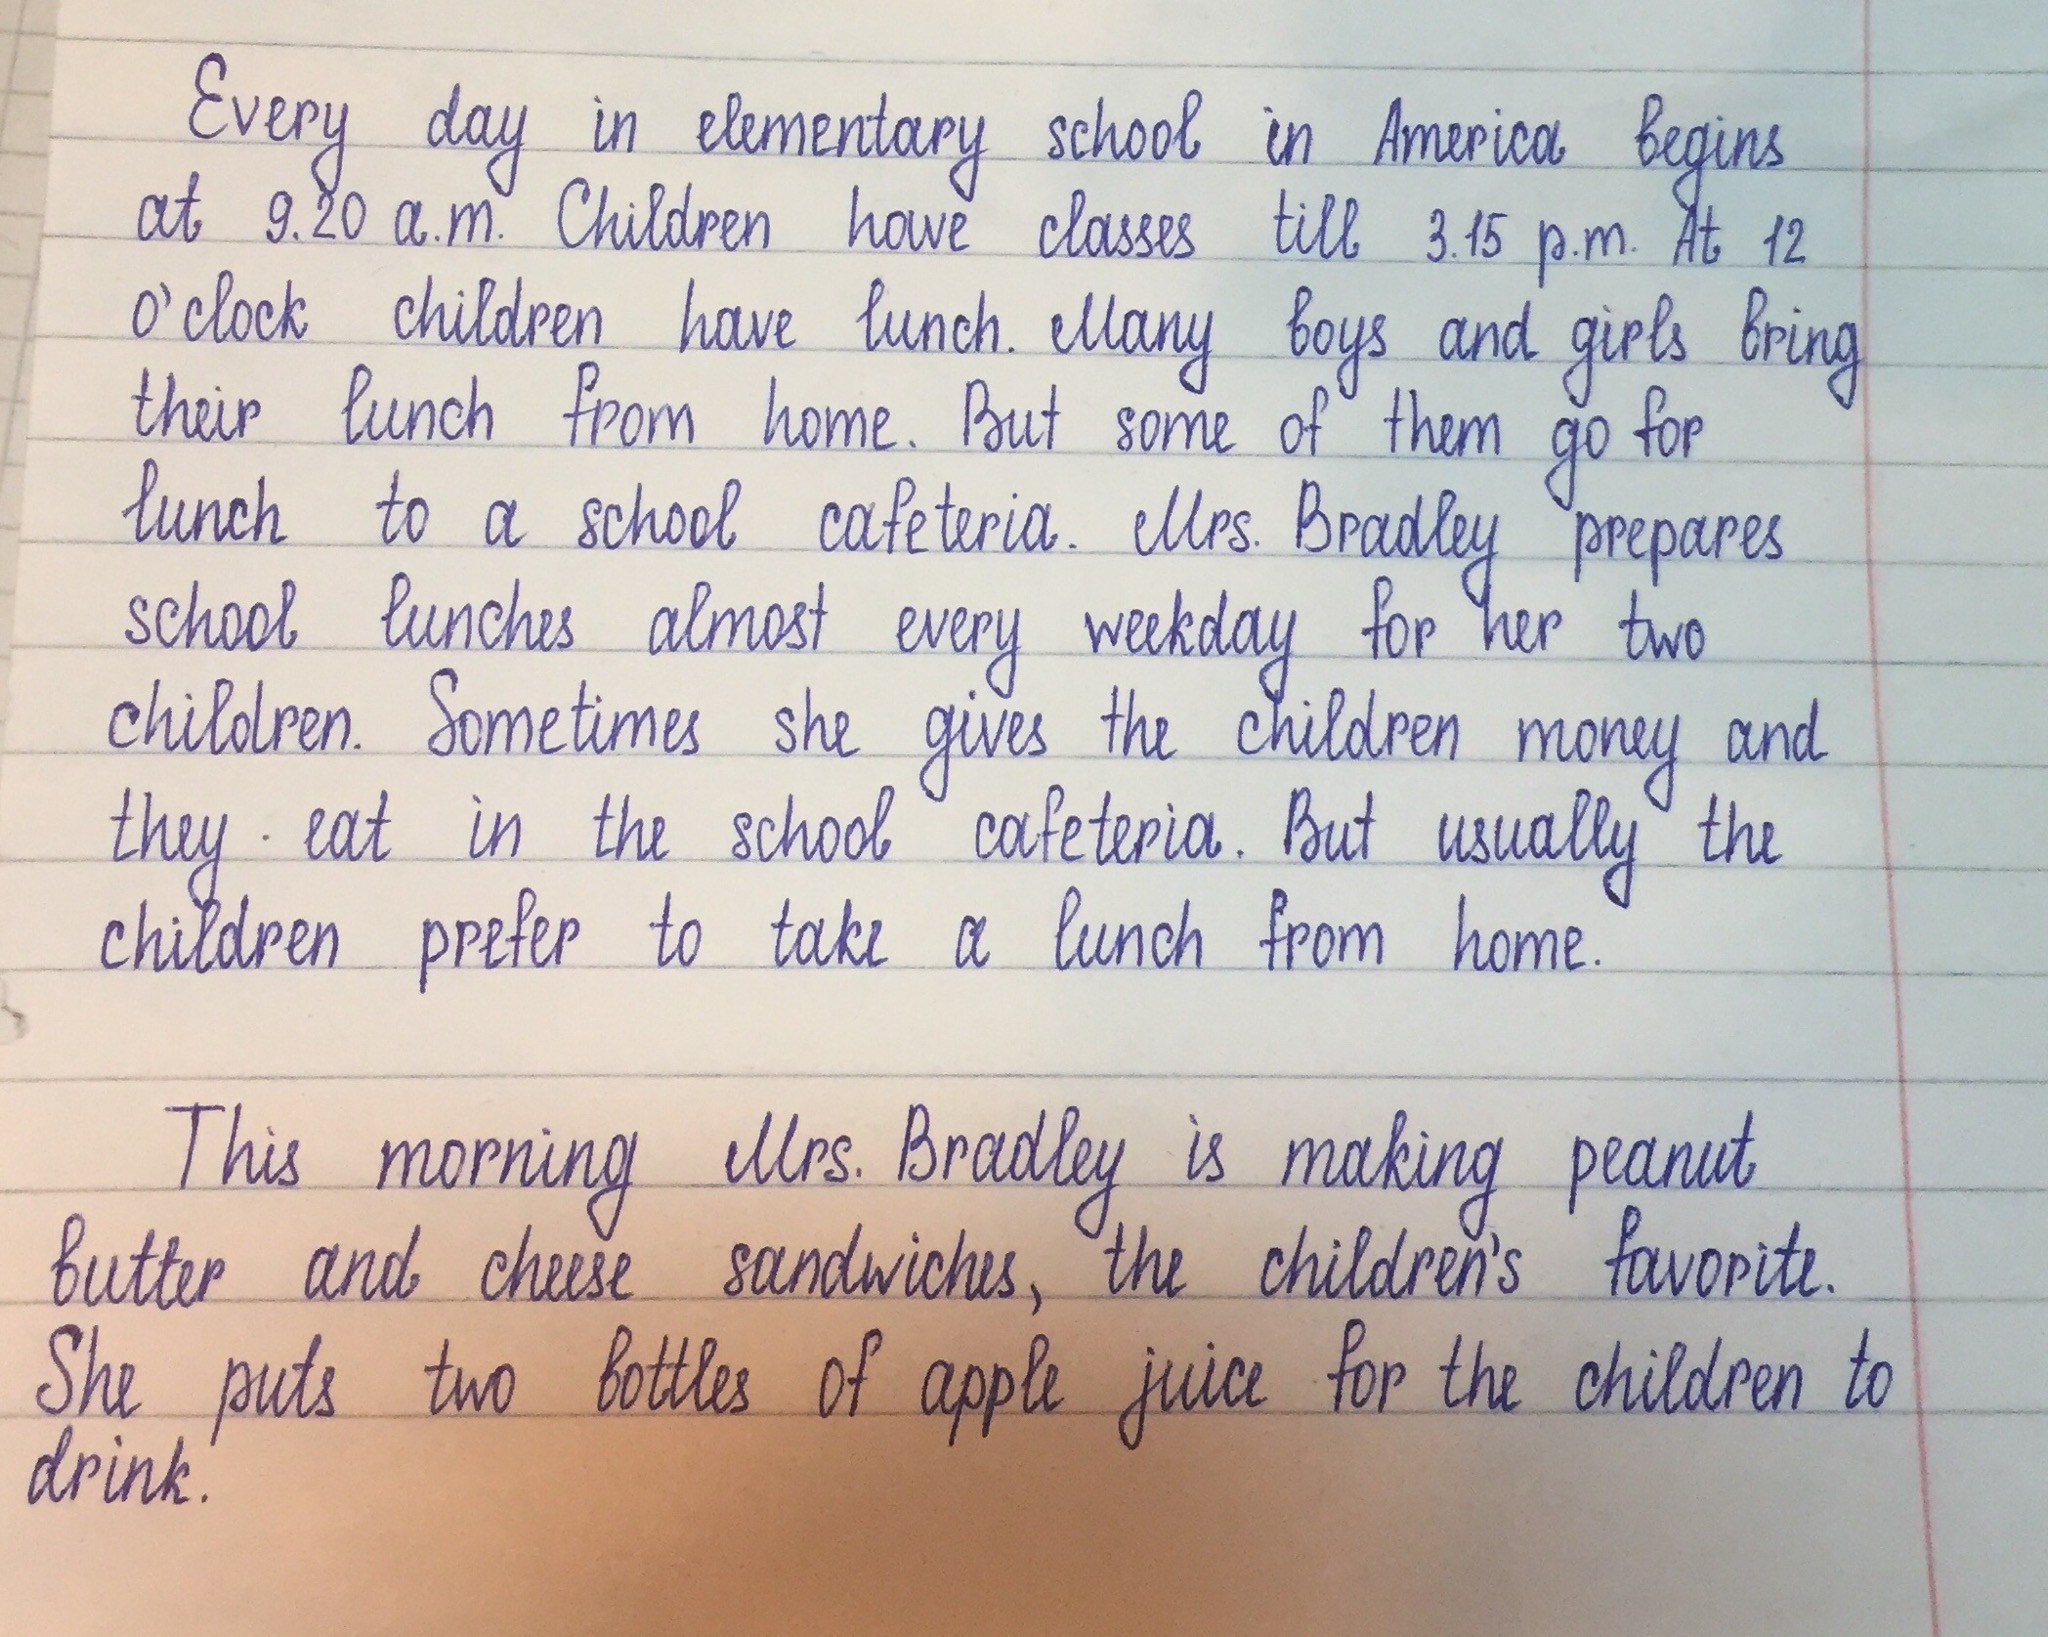 Every day in elementary school in America begins
at 9.20 a.m. Children have classes till 3.15 p.m. At 12
o'clock children have lunch. Many boys and girls bring
their lunch from home. But some of them go for
lunch to a school cafeteria. Mrs. Bradley prepares
school lunches almost every weekday for her two
children. Sometimes she gives the children money and
they eat in the school cafeteria. But usually the
children prefer to take a lunch from home.
This morning Mrs. Bradley is making peanut
butter and cheese sandwiches, the children's favorite.
She puts two bottles of apple juice for the children to
drink.